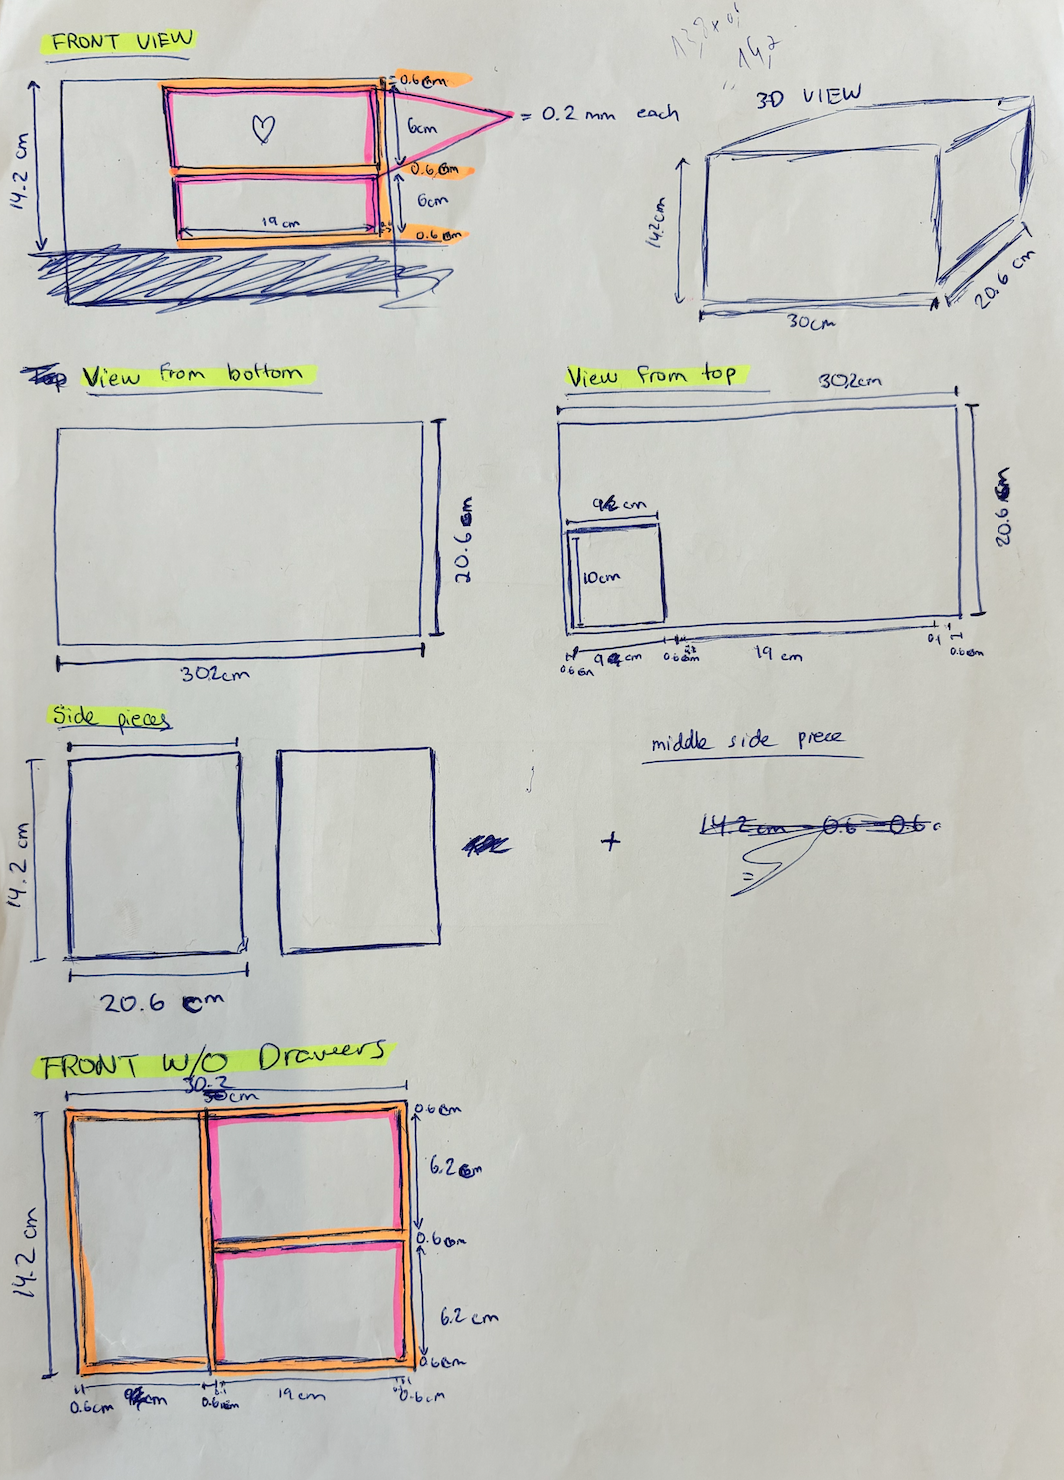 FRONT VIEW
14.2 cm
0.6 cm
6cm
= 0.2 mm each
0.6 cm
6cm
19 cm
0.6 cm
14,2
3D VIEW
14.2cm
30cm
20.6 cm
View from bottom
20.6 cm
30.2cm
View from top
30.2cm
20.6 cm
cm
10cm
0.6 cm
cm
0.6cm
19 cm
0.1
0.6cm
Side pieces
14.2 cm
20.6 cm
+
middle side piece
14.2 cm - 0.6 - 0.6 c
=
FRONT W/O Drawers
30.2
30cm
14.2 cm
0.6cm
6.2 cm
0.6cm
6.2 cm
0.6cm
0.6cm
cm
0.6cm
19cm
0.6cm